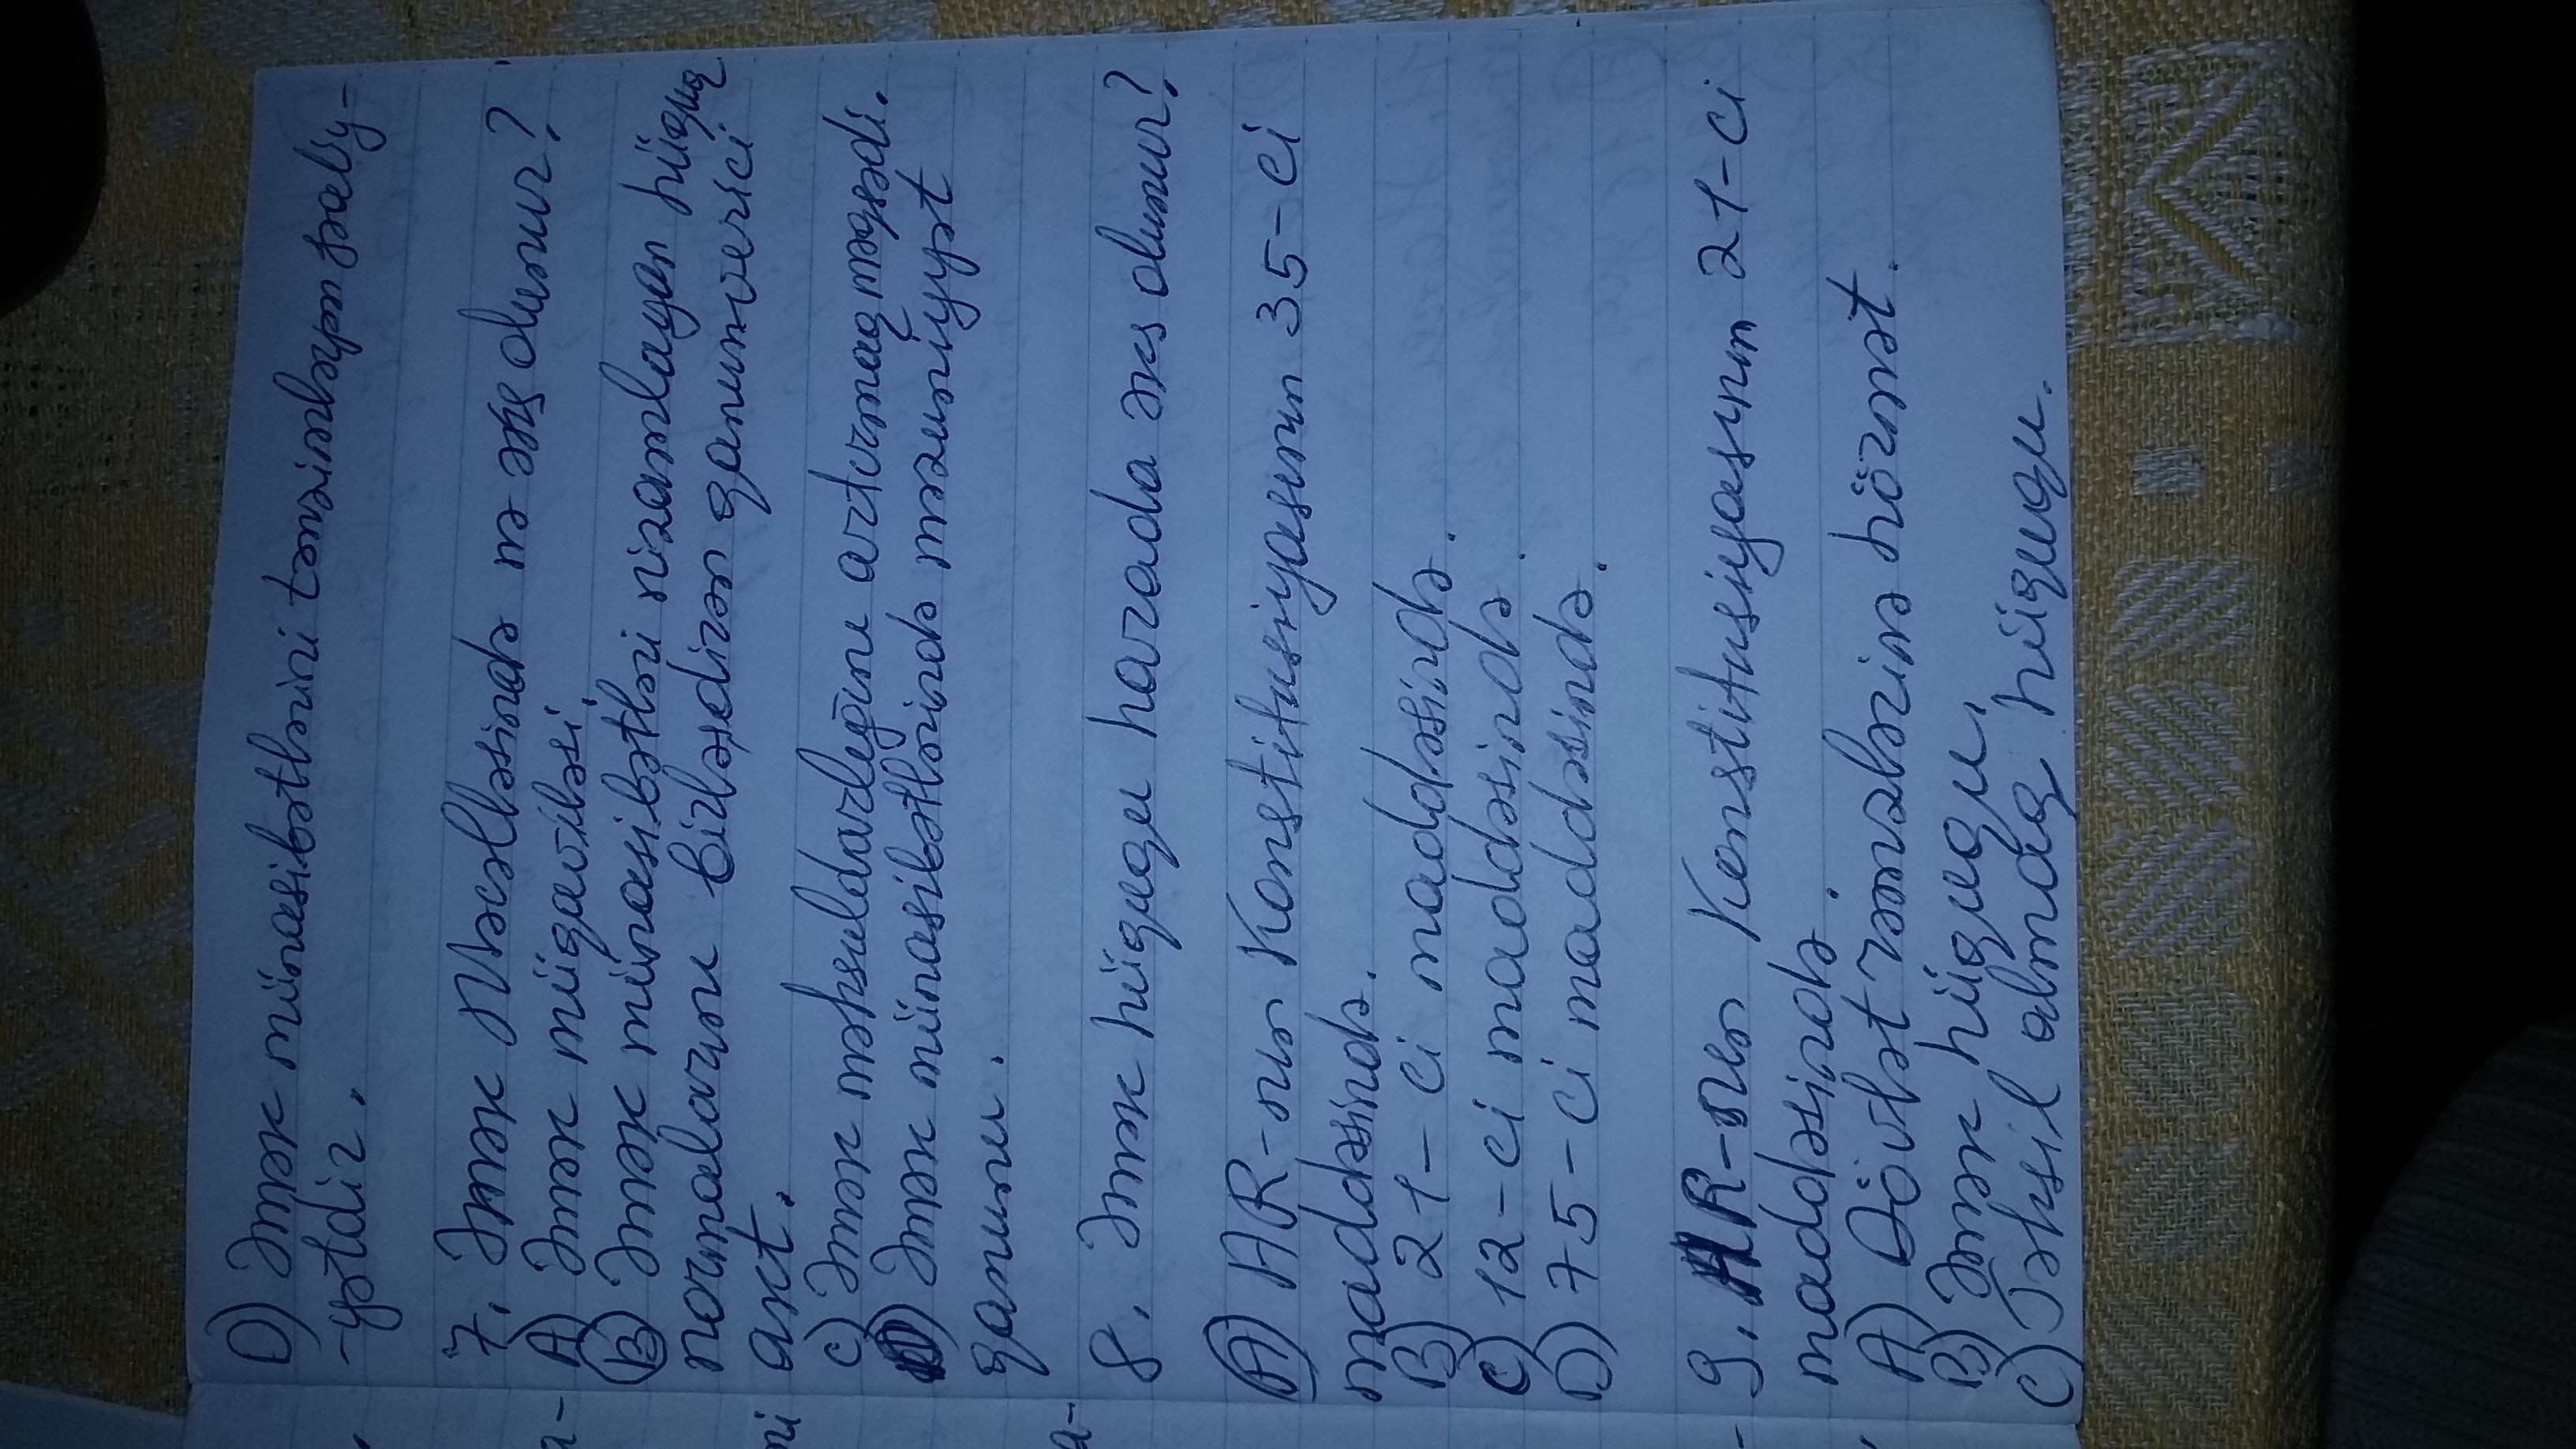 D) Əmək münasibətlərini tənzimləyən fəaliy-
-yətdir.
7. Əmək Məcəlləsində nə əks olunur?
a- A) Əmək müqaviləsi.
B) Əmək münasibətləri nizamlayan hüquq
normalarını birləşdirən qanunverici
ni akt.
C) Əmək məhsuldarlığını artırmaq məqsədi.
D) Əmək münasibətlərində məzuniyyət
qanunu.
a-
8. Əmək hüququ harada əks olunur?
A) AR-nın Konstitusiyasının 35-ci
maddəsində.
B) 21-ci maddəsində.
C) 12-ci maddəsində.
D) 75-ci maddəsində.
9. AR-nın Konstitusiyasının 21-ci
maddəsində.
A) Dövlət rəmzlərinə hörmət.
B) Əmək hüququ.
C) Təhsil almaq hüququ.